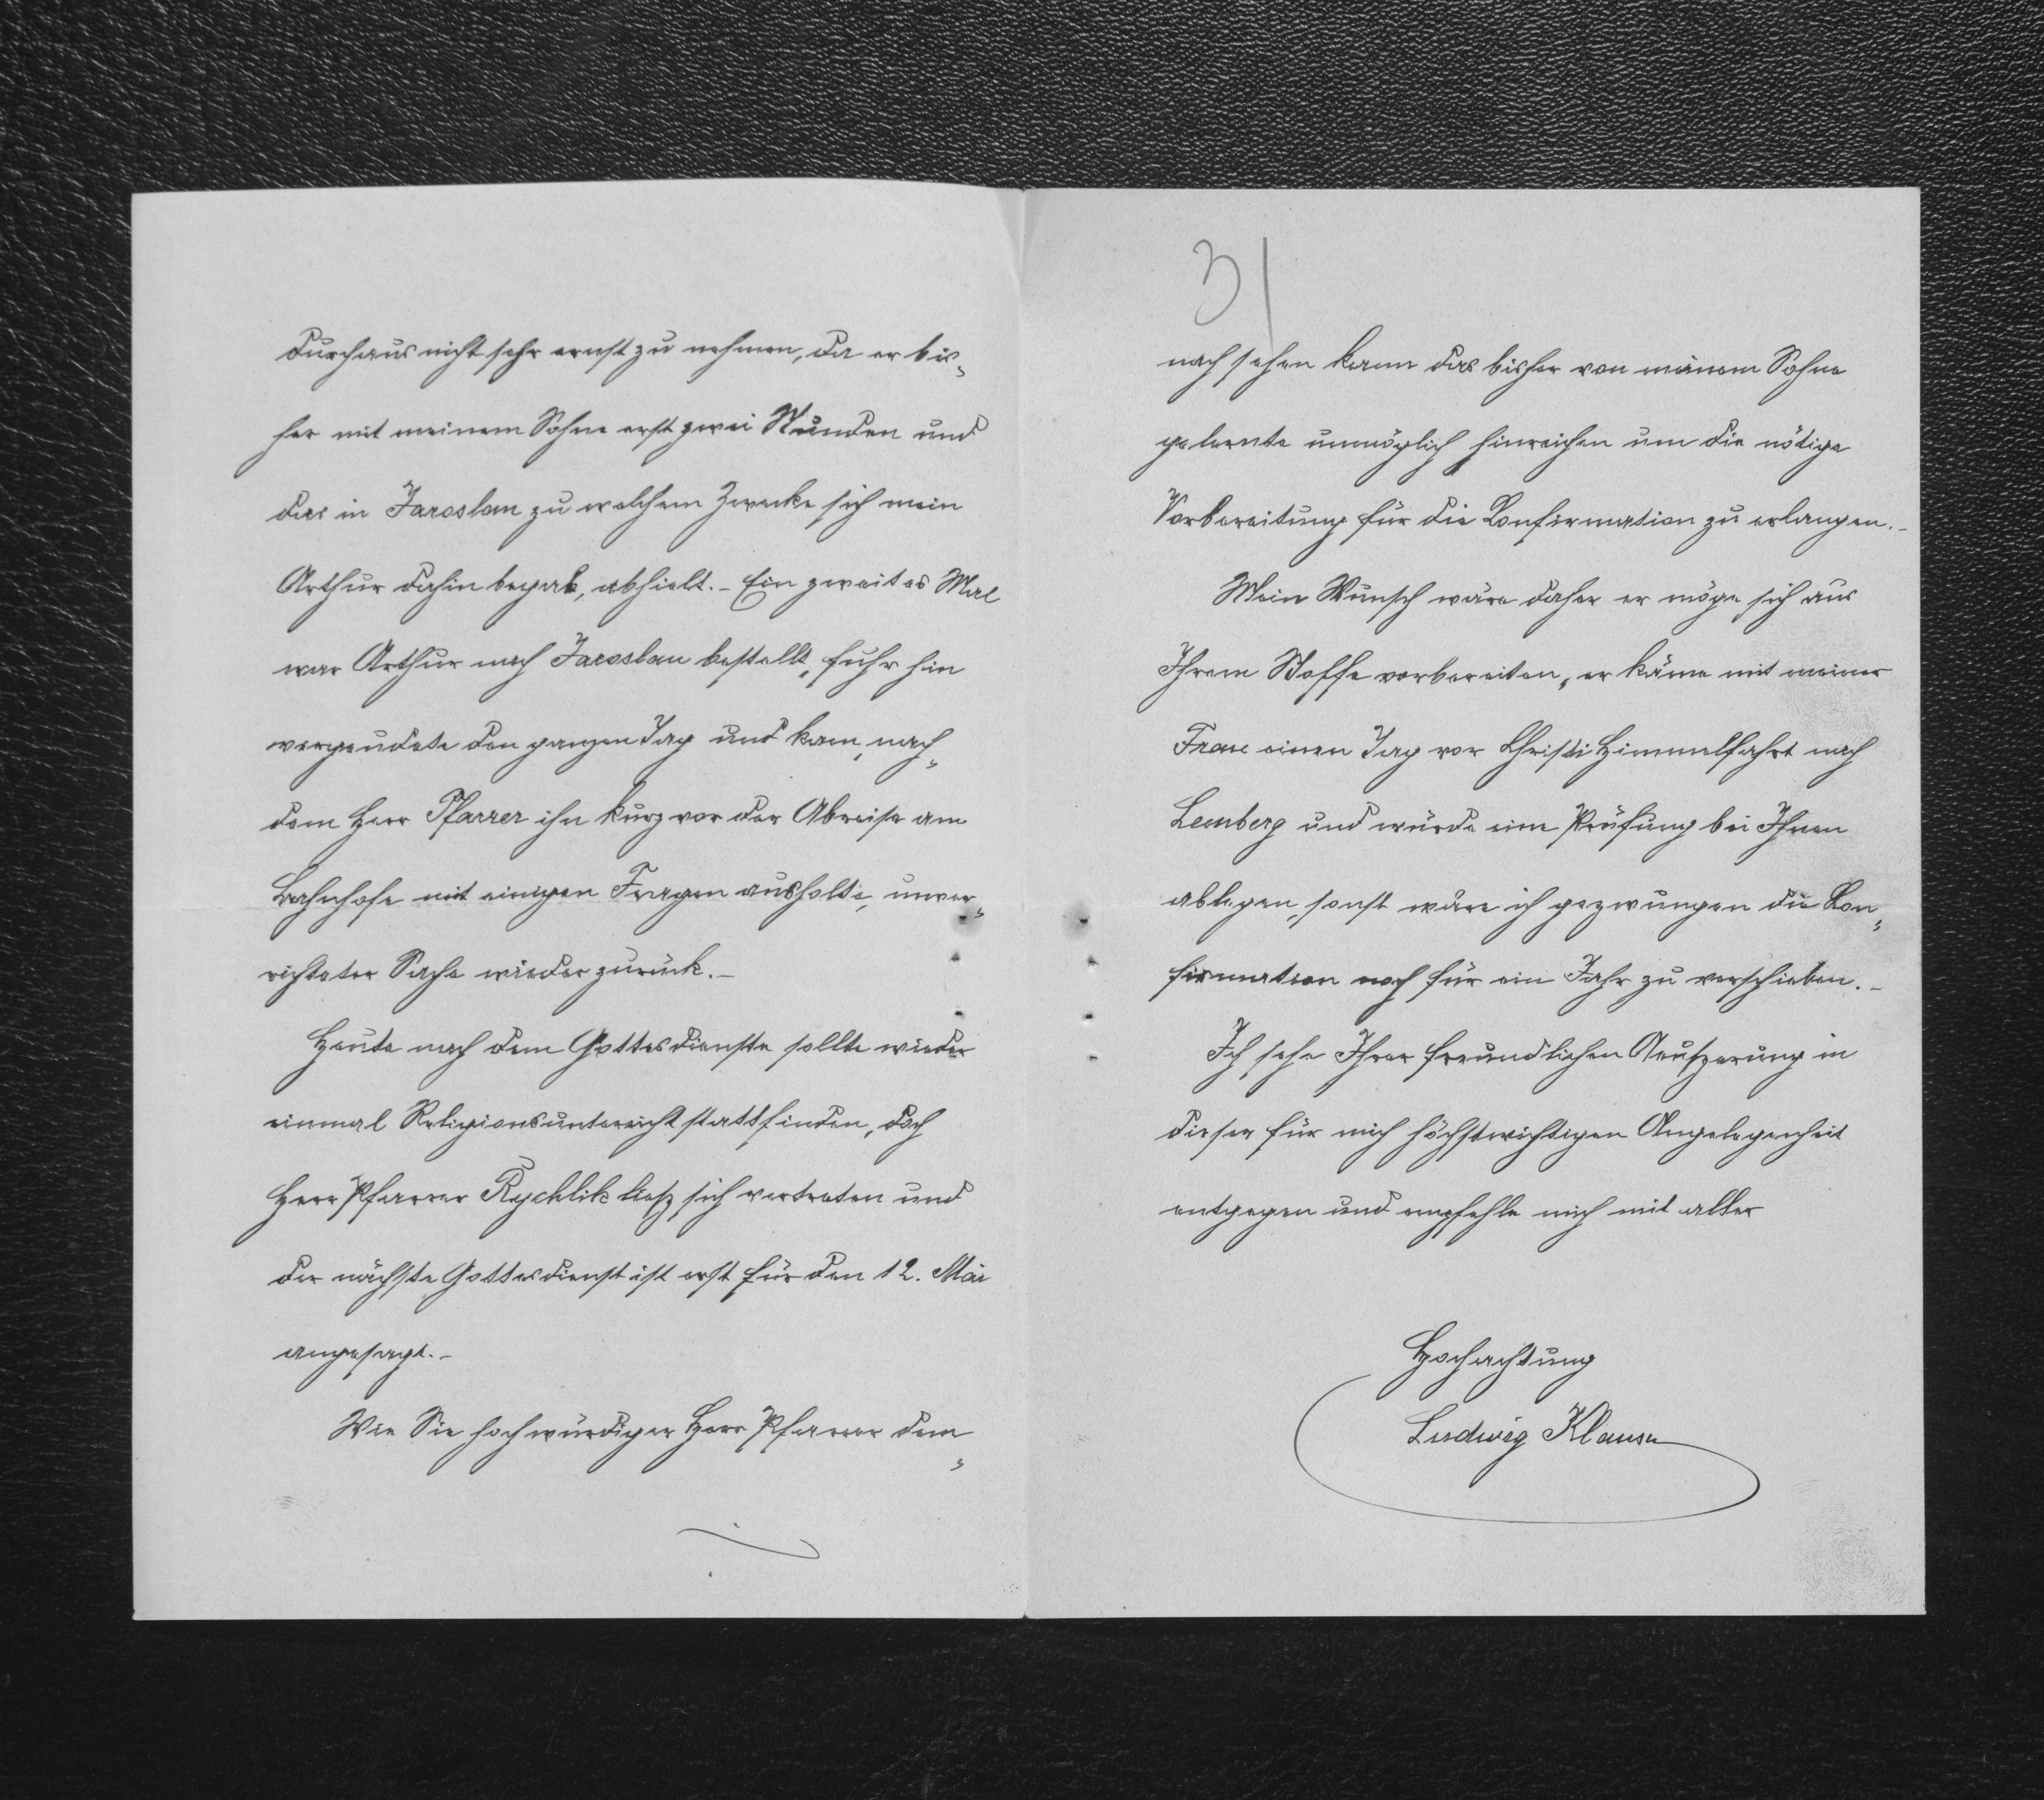 durchaus nicht sehr ernst zu nehmen, da er bis„
her mit meinem Sohne erst zwei Stunden und
das in Jaroslau zu welchem Zwecke sich mein
Arthur dahin begab, abhielt. – Ein zweites Mal
war Arthur nach Jaroslau bestellt, fuhr hin
vergeudete den ganzen Tag und kam, nach„
dem Herr Pfarrer ihn kurz vor der Abreise am
Bahnhofe mit einigen Fragen ausholte, unver„
richteter Sache wieder zurück. –
Heute nach dem Gottesdienste sollte wieder
einmal Religionsunterricht stattfinden, doch
Herr Pfarrer Rychlik liesz sich vertreten und
der nächste Gottesdienst ist erst für den 12. Mai
angesagt. –
Wie Sie hochwürdiger Herr Pfarrer dem„
31
nach sehen kann das bisher von meinem Sohne
gelernte unmöglich hinreichen um die nötige
Vorbereitung für die Confirmation zu erlangen. –
Mein Wunsch wäre daher er möge sich aus
Ihrem Stoffe vorbereiten, er käme mit meiner
Frau einen Tag vor Christi Himmelfahrt nach
Lemberg und würde eine Prüfung bei Ihnen
ablegen, sonst wäre ich gezwungen die Con„
firmation noch für ein Jahr zu verschieben. –
Ich sehe Ihrer freundlichen Aeuszerung in
dieser für mich höchstwichtigen Angelegenheit
entgegen und empfehle mich mit aller
Hochachtung
Ludwig Klausn